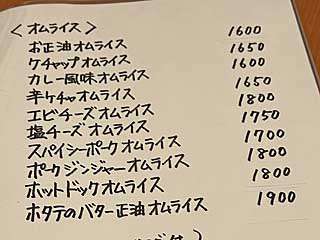 <オムライス>
お正油オムライス 1600
ケチャップオムライス 1650
カレー風味オムライス 1600
辛ケチャオムライス 1650
エビチーズオムライス 1800
塩チーズオムライス 1750
スパイシーポークオムライス 1700
ポークジンジャーオムライス 1800
ホットドックオムライス 1800
ホタテのバター正油オムライス 1900